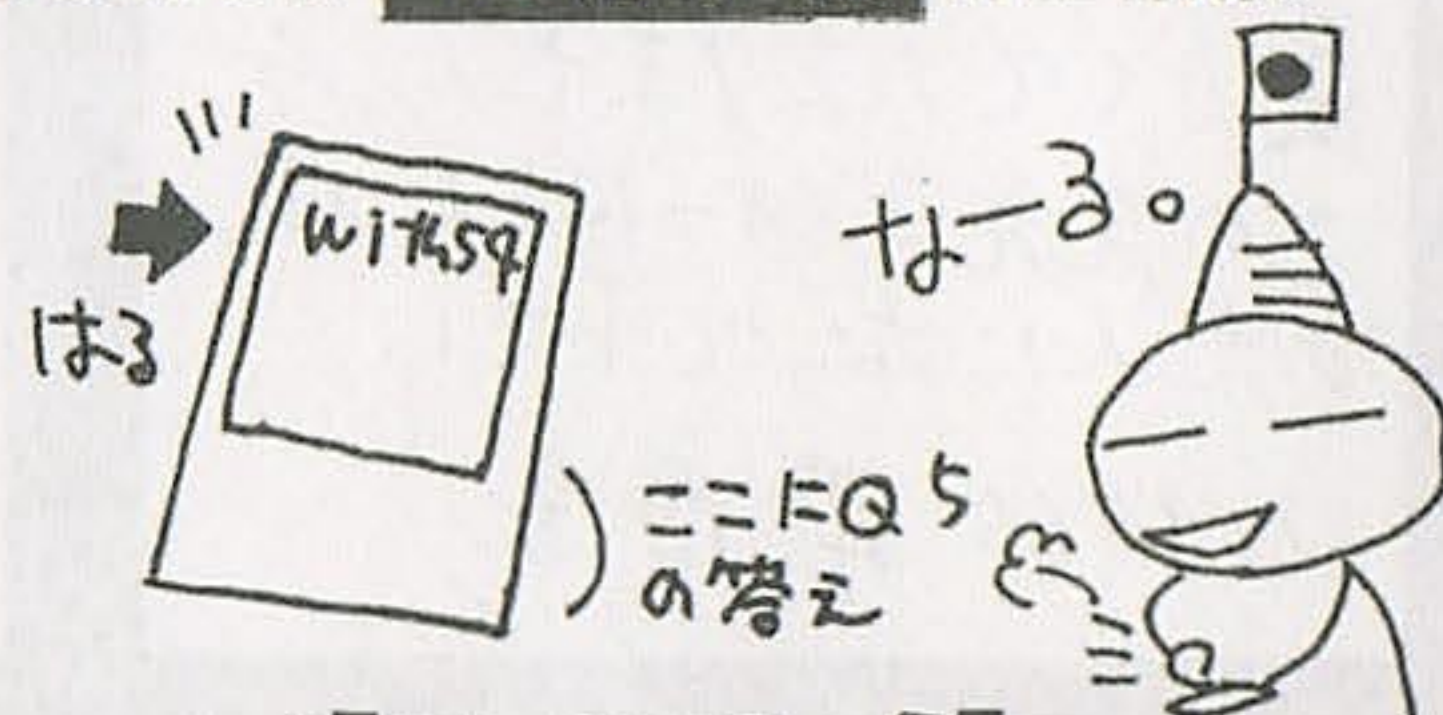 はる
with54
なーる。
ここにQ5
の答え